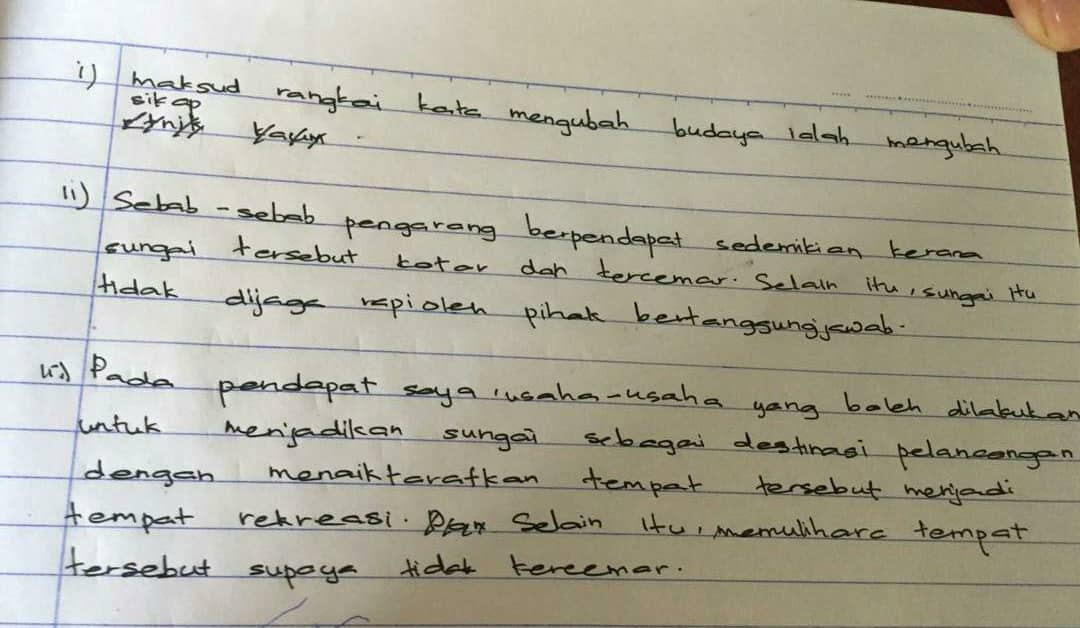 i) maksud rangkai kata mengubah budaya ialah mengubah
sikap
ii) Sebab-sebab pengarang berpendapat sedemikian kerana
sungai tersebut kotor dan tercemar. Selain itu, sungai itu
tidak dijaga rapi oleh pihak bertanggungjawab.
iii) Pada pendapat saya, usaha-usaha yang boleh dilakukan
untuk menjadikan sungai sebagai destinasi pelancongan
dengan menaiktarafkan tempat tersebut menjadi
tempat rekreasi. Selain itu, memulihara tempat
tersebut supaya tidak tercemar.